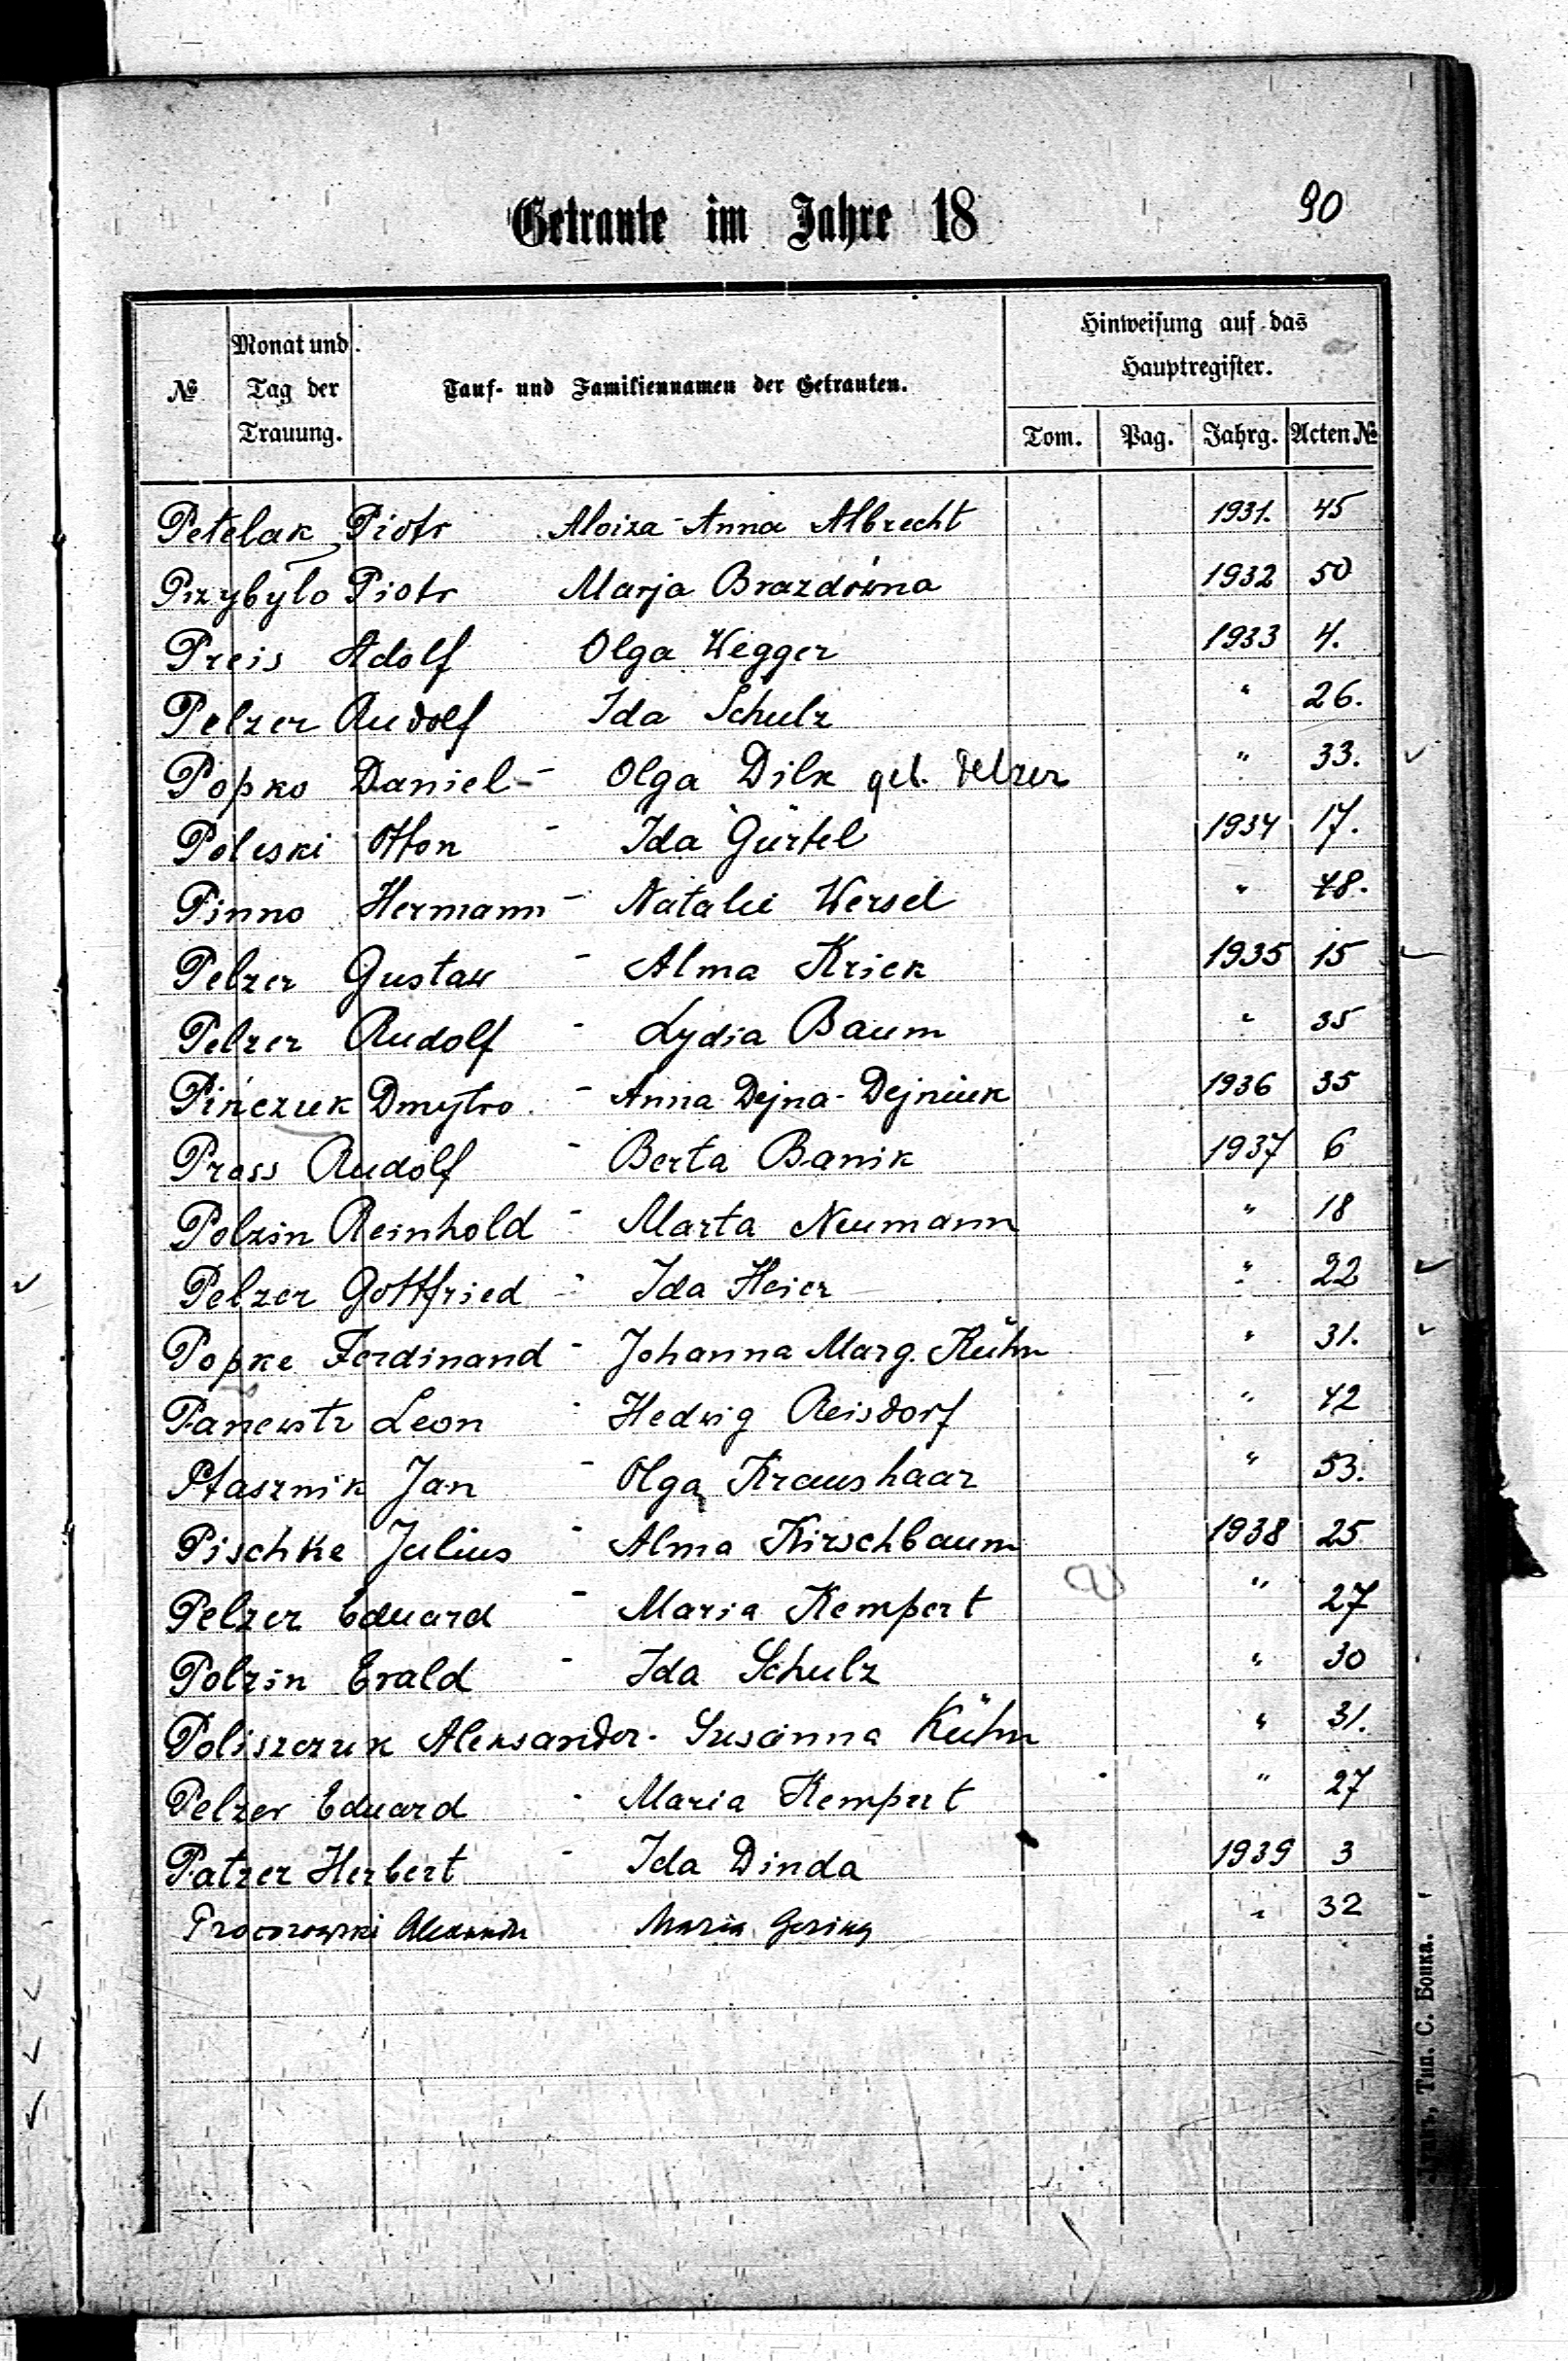 Getraute im Jahre 18
90
№
Monat und Tag der Trauung.
Tauf- und Familiennamen der Getrauten.
Hinweisung auf das Hauptregister.
Tom. Pag. Jahrg. Acten №
Petelak Piotr Aloiza-Anna Albrecht 1931. 45
Przybyło Piotr Marja Brazdówna 1932 50
Preis Adolf Olga Wegger 1933 4.
Pelzer Rudolf Ida Schulz " 26.
Popko Daniel - Olga Dilk geb. Pelzer " 33.
Poleski Otton - Ida Gürtel 1934 17.
Pinno Hermann - Natalie Wersel " 48.
Pelzer Gustaw - Alma Kriek 1935 15
Pelzer Rudolf - Lydia Baum " 35
Pińczuk Dmytro. - Anna Dejna-Dejniuk 1936 35
Prass Rudolf - Berta Banik 1937 6
Polzin Reinhold - Marta Neumann " 18
Pelzer Gottfried - Ida Heier " 22
Popke Ferdinand - Johanna Marg. Kühn " 31.
Panewtz Leon - Hedwig Reisdorf " 42
Ptasznik Jan - Olga Kraushaar " 53.
Pischke Julius - Alma Kirschbaum 1938 25.
Pelzer Eduard - Maria Kempert " 27
Polzin Ewald - Ida Schulz " 30
Poliszczuk Aleksander - Susanna Kühn " 31.
Pelzer Eduard - Maria Kempert " 27
Patzer Herbert - Ida Dinda 1939 3
Alexander Maria " 32
Тип. С. Бонка.